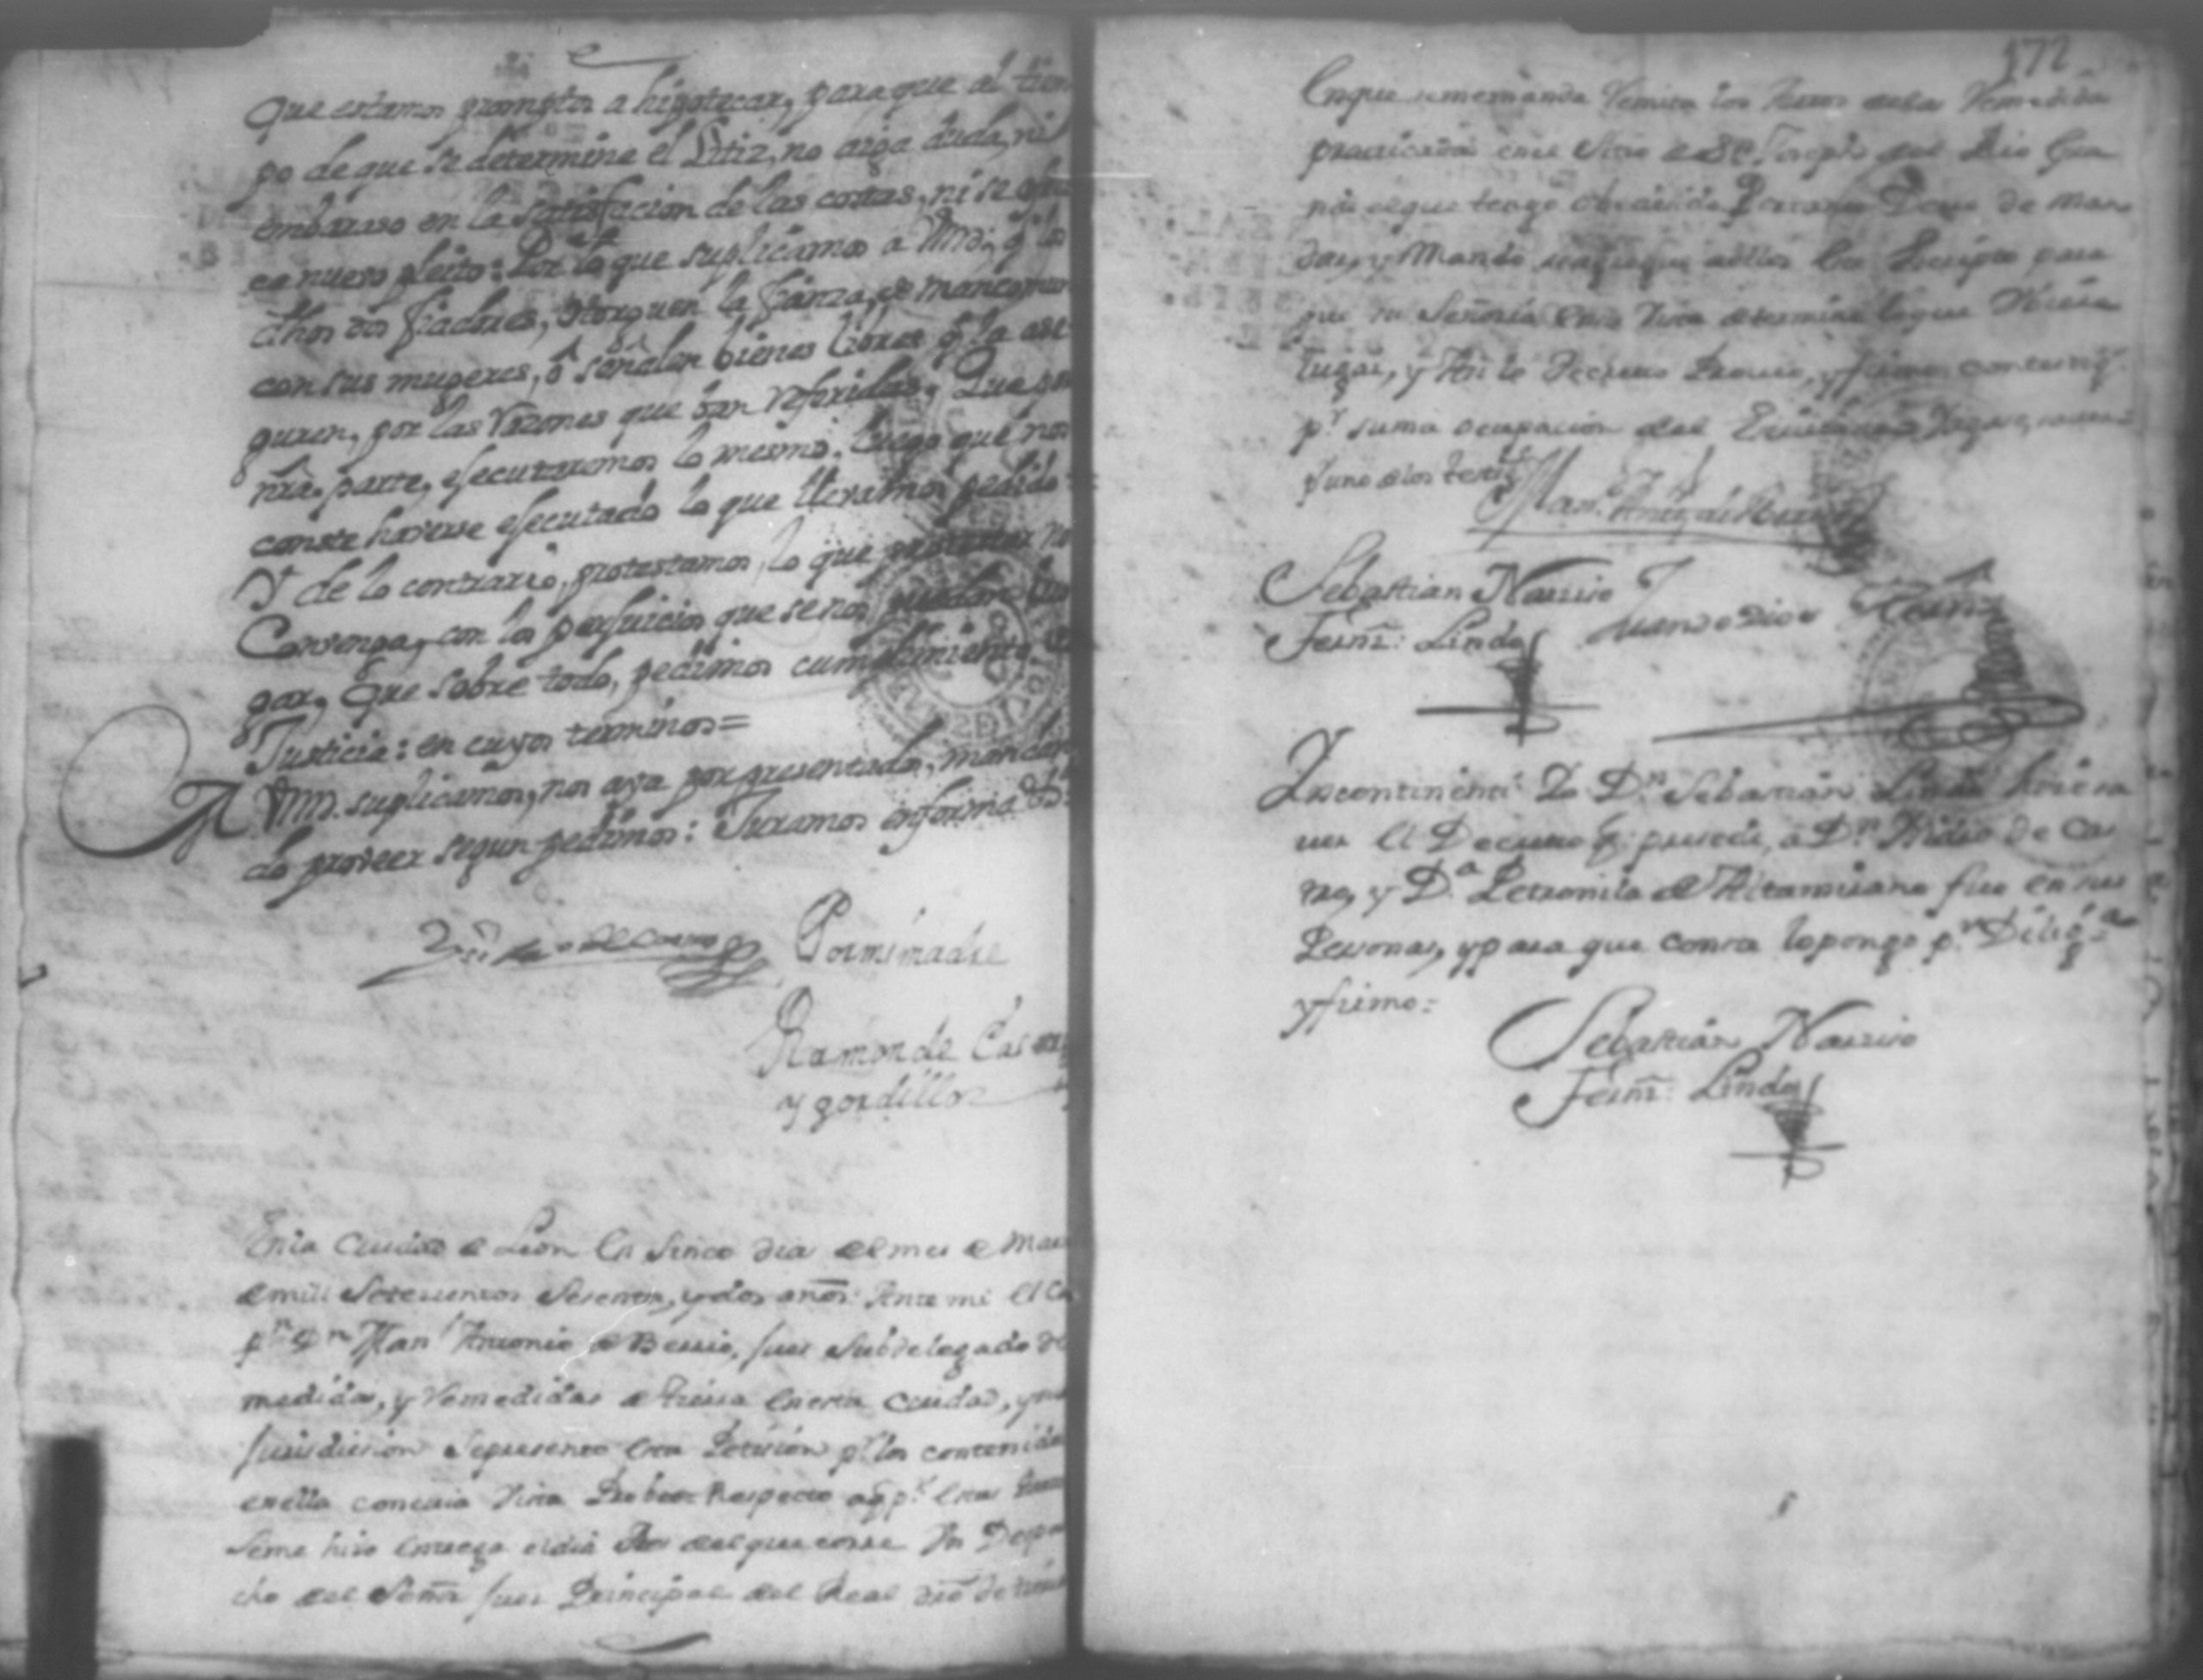 que estamos promptos a hipotecar, para que al tiem
po de que se determine el Litiz, no aiga duda, ni
embaraso en la satisfacion de las costas, ni se ofres
ca nuevo pleito: Por lo que suplicamos a Vmd. q̃ los
dhos dos fiadores, otorguen la fianza, de mancomun
con sus mugeres, ô señalen bienes libres q̃ la ase
guren, por las razones que ban referidas, Que por
nrã. parte, ejecutaremos lo mesmo, luego que nos
conste haverse ejecutado lo que llevamos pedido
Y de lo contrario, protestamos, lo que nos
Convenga, con los perjuicios que se nos
gar, Que sobre todo, pedimos cumplimiento de
Justicia: en cuyos terminos=
A Vmd. suplicamos, nos aya por presentados, mandan
do proveer segun pedimos: Juramos en forma
Por mi madre
Ramon de Castro
y gordillo
En la Ciudad de Leon en sinco dias del mes de
de mill Setesientos Sesenta, y dos años: Ante mi el Ca
pn. Dn. Manl. Antonio de Berrio, Jues Subdelegado de
medidas, y remedidas de tierra en esta ciudad, y su
Jurisdision se presento esta Petision pr. los contenidos
en ella con cuia vista Respecto a q̃ pr.
se me hiso entrega el dia del que corre Un Despa
cho del Señor Jues Principal del Real dro. de tierras
172
En que se me manda remita los Autos de la remedida
practicada en el Sitio de Sn. Joseph del Rio
 el que tengo obedecido Devo de man
dar, y Mando se agregue a ellos este Escripto para
que su Señoria en su vista determine lo que
lugar, y Asi lo Decreto Proveo, y firmo con testigs.
pr. suma ocupacion del Escribano
y uno de los testigs.
Manl. Anto. de Berrio
Sebastian Narsiso
Fernz. Lindo
Juan de Dios
Incontinenti Yo Dn. Sebastian Lindo hise sa
ver el Decreto q̃ precede, a Dn. Isidro de Cas
tro, y Da. Petronila de Altamirano fue en sus
Personas, y para que conste lo pongo pr. Diliga.
y firmo=
Sebastian Narsiso
Fernz. Lindo